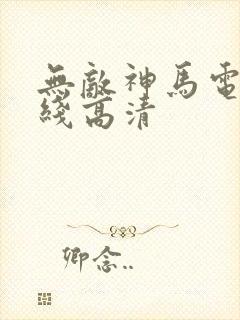 無敵神馬電
綫高清
卿念..